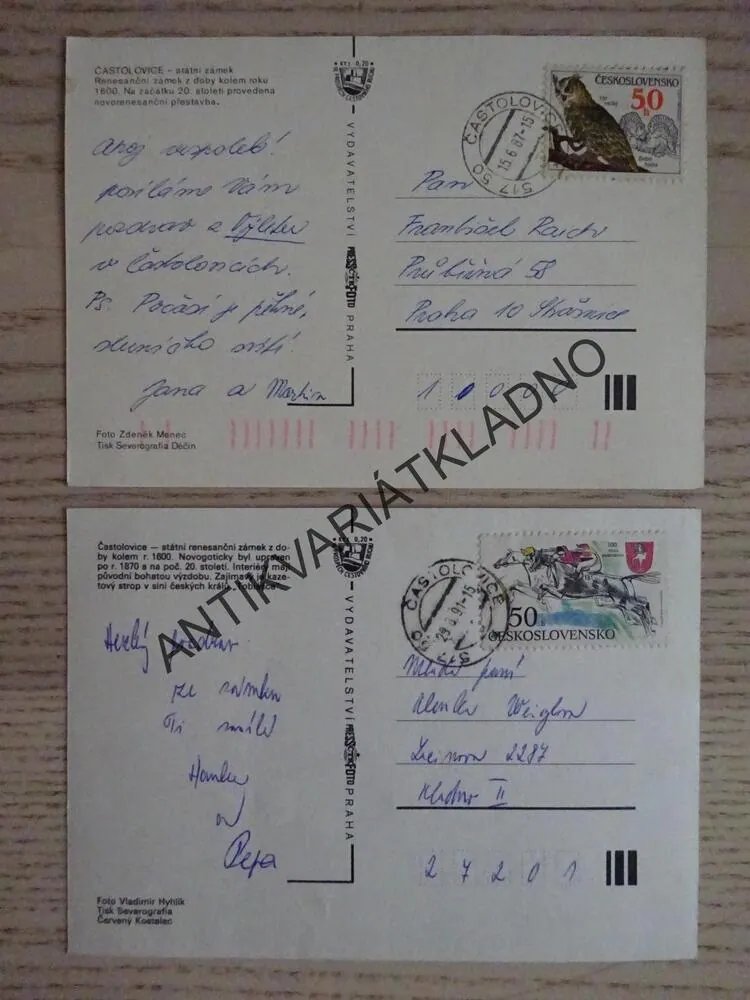 ČASTOLOVICE – státní zámek
Renesanční zámek z doby kolem roku
1600. Na začátku 20. století provedena
novorenesanční přestavba.
KTS 0,20
ČESKOSLOVENSKO
50 h
Výr velký
ČASTOLOVICE
15.6.87-15
517 50
Ahoj vespolek!
posíláme Vám
pozdrav z Výletu
v Častolovicích.
Ps. Počasí je pěkné,
sluníčko svítí!
Jana a Martin
VYDAVATELSTVÍ PRESSFOTO PRAHA
Pan
František
Průběžná 58
Praha 10 Strašnice
Foto Zdeněk Menec
Tisk Severografia Děčín
ANTIKVARIÁTKLADNO
Častolovice – státní renesanční zámek z do-
by kolem r. 1600. Novogoticky byl upraven
po r. 1870 a na poč. 20. století. Interiéry mají
původní bohatou výzdobu. Zajímavý kaze-
tový strop v síni českých králů
0,20
50 h
ČESKOSLOVENSKO
ČASTOLOVICE
Hezký pozdrav
ze zámku
Ti
Hanka
Pepa
VYDAVATELSTVÍ PRESSFOTO PRAHA
paní
2287
Kladno II
2 7 2 0 1
Foto Vladimír Hyhlík
Tisk Severografia
Červený Kostelec